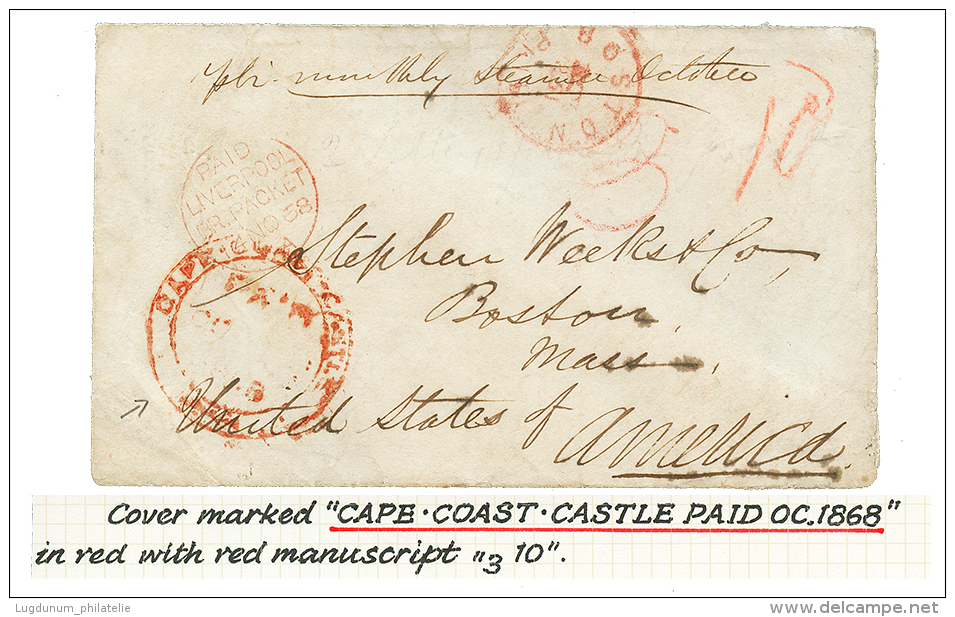 monthly Steamer October
BOSTON
10
3
PAID
LIVERPOOL
BR. PACKET
NO 58
CAPE COAST CASTLE
PAID
Stephen Weeks & Co,
Boston,
Mass.
United States of
America.
Cover marked "CAPE·COAST·CASTLE PAID OC.1868"
in red with red manuscript "3 10".
Lugdunum_philatelie
www.delcampe.net